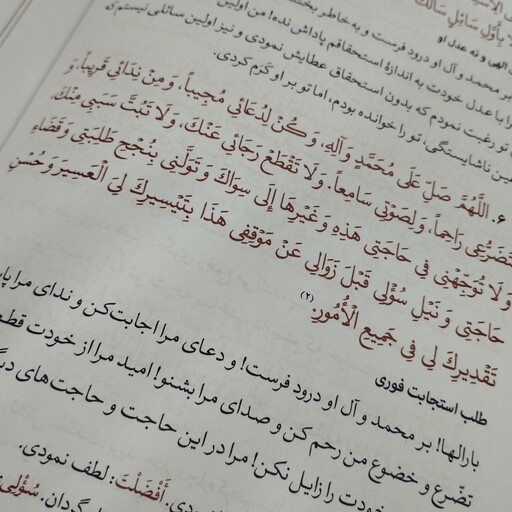 لا بِأَوَّلِ سَائِلٍ سَأَلَكَ
الهی و نه عدل او
بر محمد و آل او درود فرست و به خاطر
را با عدل خودت به اندازهٔ استحقاقم پاداش نده! من اولین
تو رغبت نمودم که بدون استحقاق عطایش نمودی و نیز اولین سائلی نیستم که
ین ناشایستگی، تو را خوانده بودم، اما تو بر او کرم کردی.
۶. اللَّهُمَّ صَلِّ عَلَى مُحَمَّدٍ وَ آلِهِ، وَ كُنْ لِدُعَائِي مُجِيباً، وَ مِنْ نِدَائِي قَرِيباً، وَ
تَضَرُّعِي رَاحِماً، وَ لِصَوْتِي سَامِعاً. وَ لَا تَقْطَعْ رَجَائِي عَنْكَ، وَ لَا تَبُتَّ سَبَبِي مِنْكَ
وَ لَا تُوَجِّهْنِي فِي حَاجَتِي هَذِهِ وَ غَيْرِهَا إِلَى سِوَاكَ وَ تَوَلَّنِي بِنُجْحِ طَلِبَتِي وَ قَضَاءِ
حَاجَتِي وَ نَيْلِ سُؤْلِي قَبْلَ زَوَالِي عَنْ مَوْقِفِي هَذَا بِتَيْسِيرِكَ لِيَ الْعَسِيرَ وَ حُسْنِ
تَقْدِيرِكَ لِي فِي جَمِيعِ الْأُمُورِ. (۲)
طلب استجابت فوری
بارالها! بر محمد و آل او درود فرست! و دعای مرا اجابت کن و ندای مرا پا
تضرّع و خضوع من رحم کن و صدای مرا بشنو! امید مرا از خودت قطع
خودت را زایل نکن! مرا در این حاجت و حاجت‌های
نمودی. أَفْضَلْتَ: لطف نمودی.
گردان. سُؤْلِي: